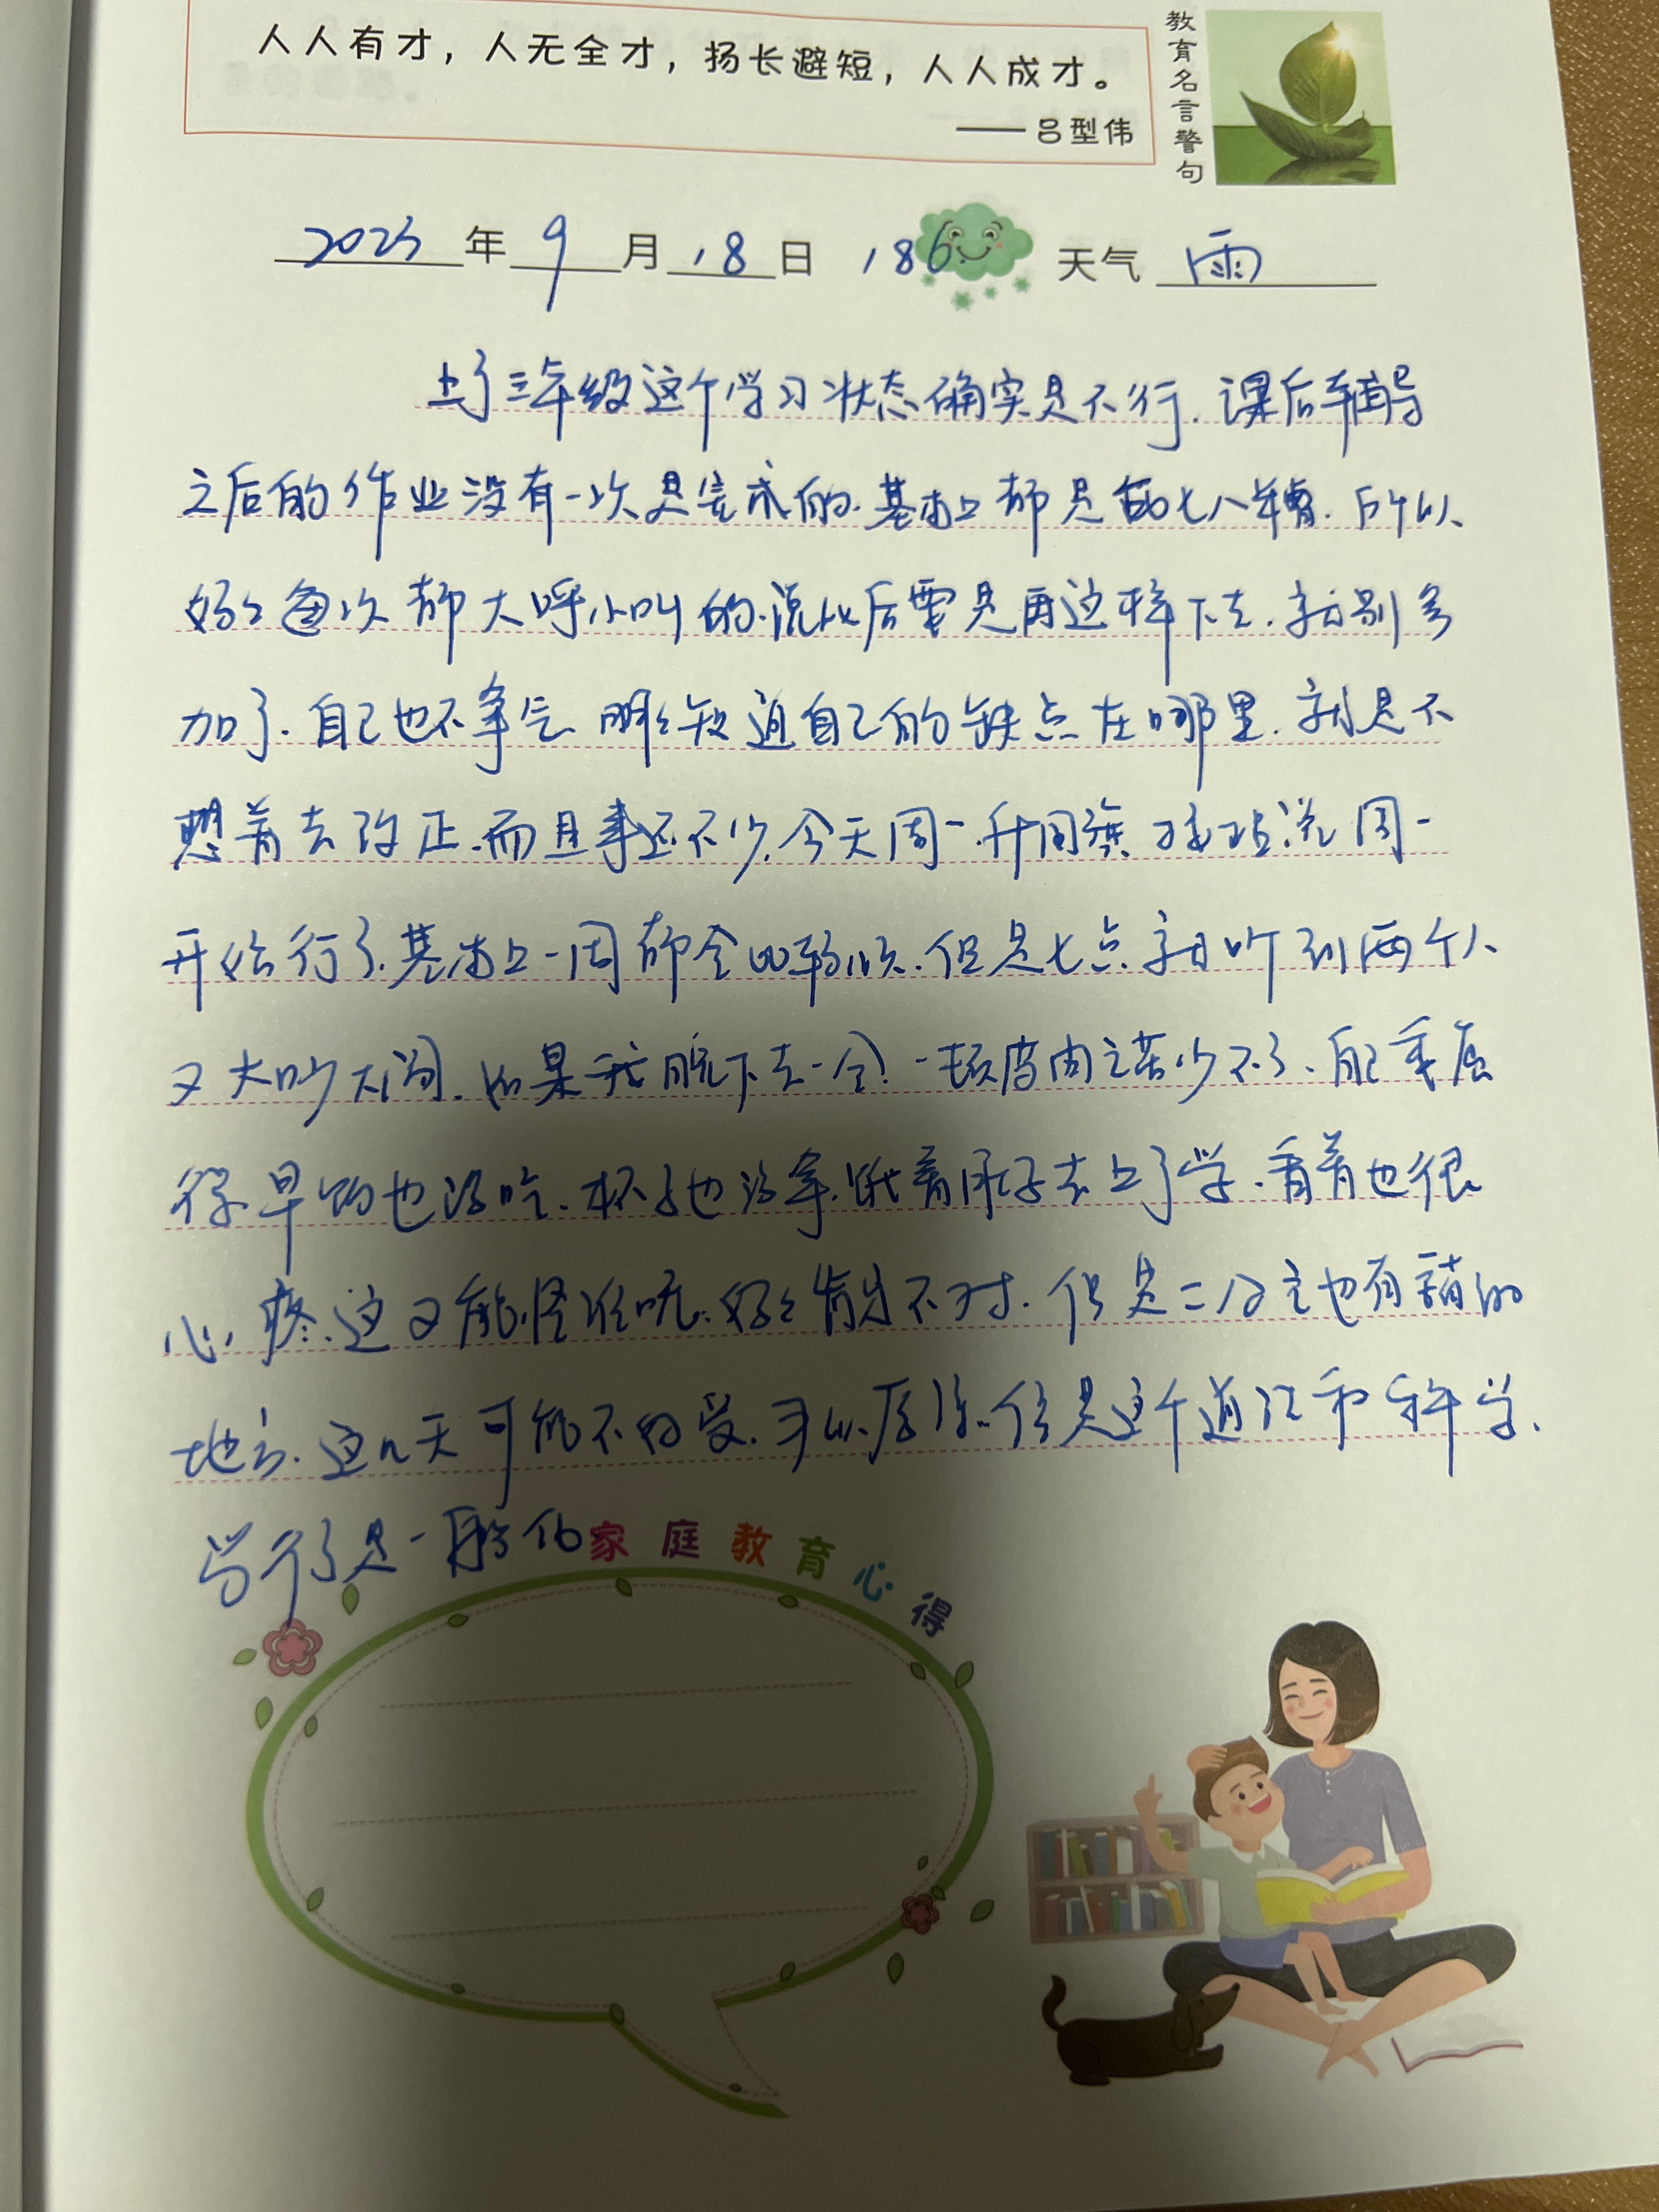 人人有才，人无全才，扬长避短，人人成才。
——吕型伟
教育名言警句
2023年9月18日 186 天气 雨
上了三年级这个学习状态确实是不行.课后辅导
之后的作业没有一次是完成的.基本上都是乱七八糟.所以
妈妈每次都大呼小叫的.说以后要是再这样下去.就别参
加了.自己也不争气 明明知道自己的缺点在哪里.就是不
想着去改正.而且事还不少.今天周一.升国旗 说周一
开始行了.基本上一周都会比较顺.但是七点就听到两个人
又大吵大闹.如果我脱下去一会!一顿皮肉之苦少不了.自己委屈
得早饭也没吃.杯子也没拿.饿着肚子去上了学.看着也很
心疼.这又能怪谁呢.妈妈肯定不对.但是二公主也有错的
地方.这几天可能不好受.
学行了是一
家庭教育心得